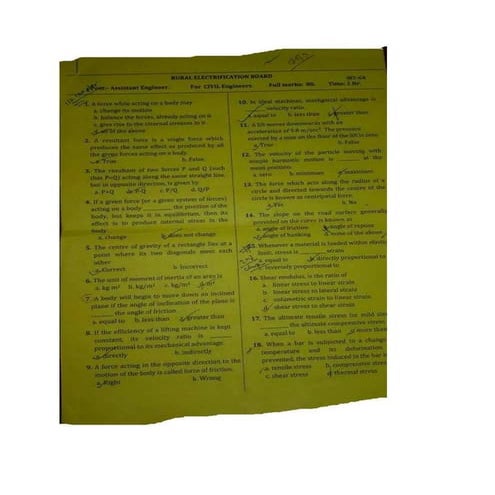 RURAL ELECTRIFICATION BOARD
SET-4A
Post:- Assistant Engineer. For CIVIL Engineers Full marks: 80. Time: 1 Hr.
1. A force while acting on a body may
a. change its motion
b. balance the forces, already acting on it
c. give rise to the internal stresses in it
d. all of the above
2. A resultant force is a single force which
produces the same effect as produced by all
the given forces acting on a body.
a. True b. False
3. The resultant of two forces P and Q (such
that P>Q) acting along the same straight line,
but in opposite direction, is given by
a. P+Q b. P-Q c. P/Q d. Q/P
4. If a given force (or a given system of forces)
acting on a body ____ the position of the
body, but keeps it in equilibrium, then its
effect is to produce internal stress in the
body.
a. change b. does not change
5. The centre of gravity of a rectangle lies at a
point where its two diagonals meet each
other
a. Correct b. Incorrect
6. The unit of moment of inertia of an area is
a. kg m² b. kg/m² c. kg/m³ d. m⁴
7. A body will begin to move down an inclined
plane if the angle of inclination of the plane is
____ the angle of friction.
a. equal to b. less than c. greater than
8. If the efficiency of a lifting machine is kept
constant, its velocity ratio is ____
proportional to its mechanical advantage.
a. directly b. indirectly
9. A force acting in the opposite direction to the
motion of the body is called force of friction.
a. Right b. Wrong
10. In ideal machines, mechanical advantage is
____ velocity ratio.
a. equal to b. less than c. greater than
11. A lift moves downwards with an
acceleration of 9.8 m/sec². The pressure
exerted by a man on the floor of the lift is zero.
a. True b. False
12. The velocity of the particle moving with
simple harmonic motion is ____ at the
mean position.
a. zero b. minimum c. maximum
13. The force which acts along the radius of a
circle and directed towards the centre of the
circle is known as centripetal force.
a. Yes b. No
14. The slope on the road surface generally
provided on the curves is known as
a. angle of friction b. angle of repose
c. angle of banking d. none of the above
15. Whenever a material is loaded within elastic
limit, stress is ____ strain
a. equal to b. directly proportional to
c. inversely proportional to
16. Shear modulus, is the ratio of
a. linear stress to linear strain
b. linear stress to lateral strain
c. volumetric strain to linear strain
d. shear stress to shear strain
17. The ultimate tensile stress for mild steel
____ the ultimate compressive stress.
a. equal to b. less than c. more than
18. When a bar is subjected to a change
temperature and its deformation
prevented, the stress induced in the bar is
a. tensile stress b. compressive stress
c. shear stress d. thermal stress